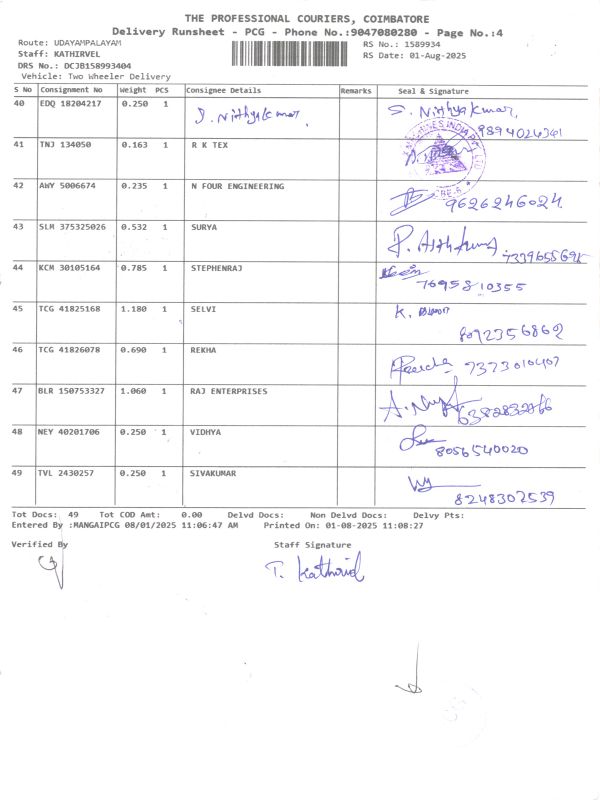 THE PROFESSIONAL COURIERS, COIMBATORE
Delivery Runsheet - PCG - Phone No.:9047080280 - Page No.:4
Route: UDAYAMPALAYAM RS No.: 1589934
Staff: KATHIRVEL RS Date: 01-Aug-2025
DRS No.: DCJB158993404
Vehicle: Two Wheeler Delivery
S No Consignment No Weight PCS Consignee Details Remarks Seal & Signature
40 EDQ 18204217 0.250 1 S. Nithyakumar S. Nithyakumar,
9894024341
41 TNJ 134050 0.163 1 R K TEX
42 AWY 5006674 0.235 1 N FOUR ENGINEERING
9626246024.
43 SLM 375325026 0.532 1 SURYA
44 KCM 30105164 0.785 1 STEPHENRAJ
7695810355
45 TCG 41825168 1.180 1 SELVI K.
8092356862
46 TCG 41826078 0.690 1 REKHA 7373010407
47 BLR 150753327 1.060 1 RAJ ENTERPRISES
48 NEY 40201706 0.250 1 VIDHYA
8056540020
49 TVL 2430257 0.250 1 SIVAKUMAR
8248307539
Tot Docs: 49 Tot COD Amt: 0.00 Delvd Docs: Non Delvd Docs: Delvy Pts:
Entered By :MANGAIPCG 08/01/2025 11:06:47 AM Printed On: 01-08-2025 11:08:27
Verified By Staff Signature
T. Kathirvel